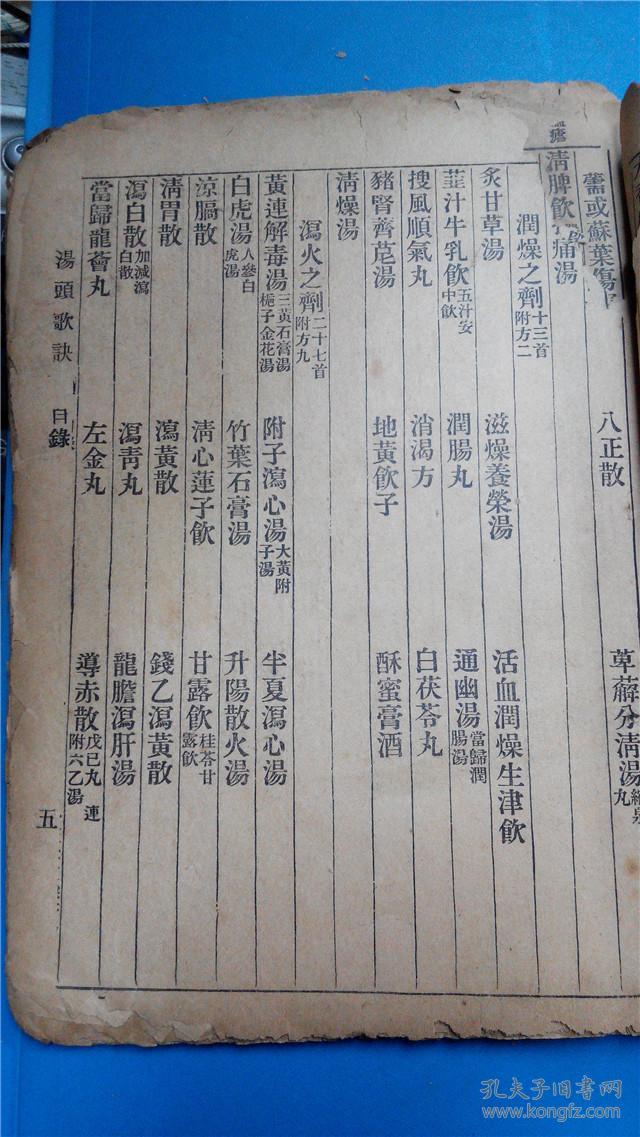 八正散 萆薢分清湯
清脾飲 痛湯
潤燥之劑 十三首 附方二
炙甘草湯 滋燥養榮湯 活血潤燥生津飲
韭汁牛乳飲 五汁安中飲 潤腸丸 通幽湯 當歸潤腸湯
搜風順氣丸 消渴方 白茯苓丸
豬腎薺苨湯 地黃飲子 酥蜜膏酒
清燥湯
瀉火之劑 二十七首 附方九
黃連解毒湯 三黃石膏湯 栀子金花湯 附子瀉心湯 大黃附子湯 半夏瀉心湯
白虎湯 人參白虎湯 竹葉石膏湯 升陽散火湯
涼膈散 清心蓮子飲 甘露飲 桂苓甘露飲
清胃散 瀉黃散 錢乙瀉黃散
瀉白散 加減瀉白散 瀉青丸 龍膽瀉肝湯
當歸龍薈丸 左金丸 導赤散 戊已丸 連附六乙湯
湯頭歌訣 目錄 五
孔夫子旧书网
www.kongfz.com